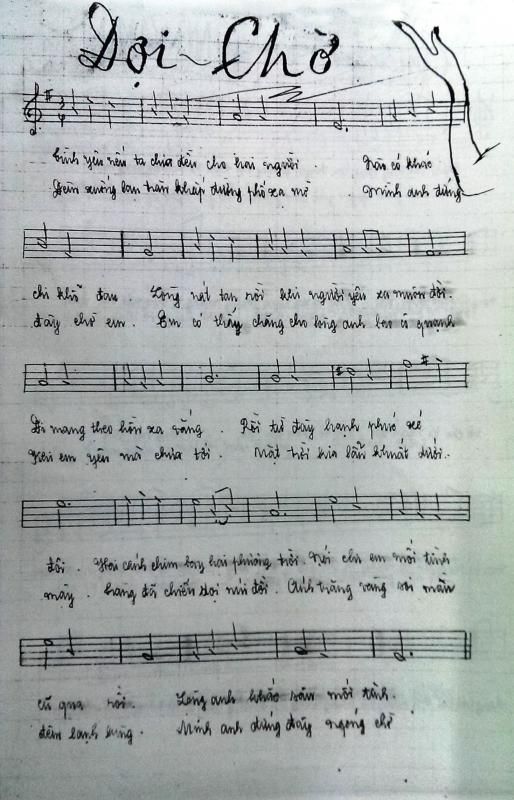 Đợi ~ Chờ
3 4
tình yêu nếu ta chia đều cho hai người . Nào có khác
Đêm xuống lan tràn khắp đường phố xa mờ . Mình anh đứng
chi khổ đau . Lòng nát tan rồi khi người yêu xa muôn đời.
đây chờ em . Em có thấy chăng cho lòng anh bao cô quạnh
Đi mang theo hồn xa vắng . Rồi từ đây hạnh phúc xé
Khi em yêu mà chưa tới . Mặt trời kia lẩn khuất dưới..
đôi . Hai cánh chim bay hai phương trời. Nói chi em mối tình
mây . hang đã chiều đồi . Ánh trăng vàng với màn
cũ qua rồi. Lòng anh khắc sâu mối tình.
đêm lạnh lùng . Mình anh đứng đây ngóng chờ